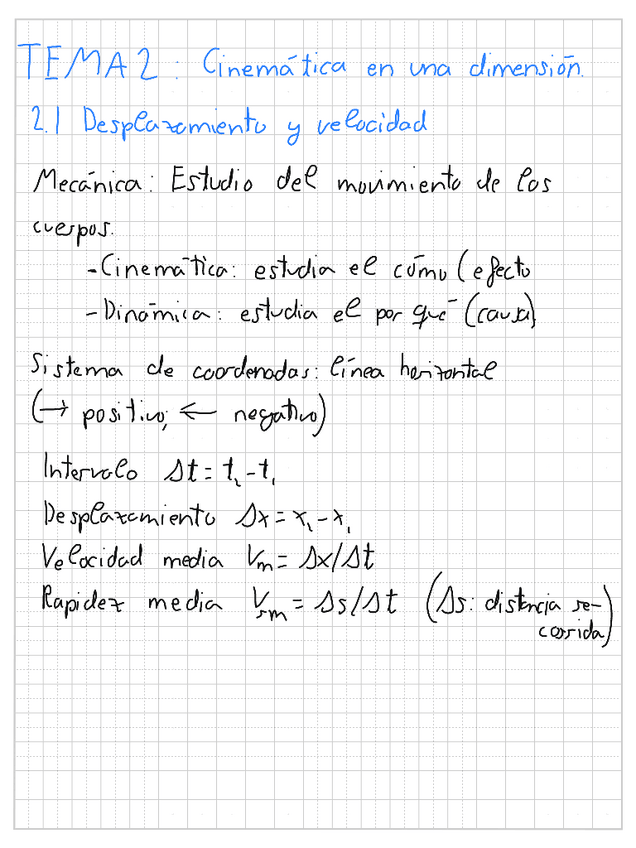 TEMA 2: Cinemática en una dimensión.
2.1 Desplazamiento y velocidad
Mecánica: Estudio del movimiento de los
cuerpos.
-Cinemática: estudia el cómo (efecto
-Dinámica: estudia el por qué (causa)
Sistema de coordenadas: línea horizontal
(→ positivo; ← negativo)
Intervalo Δt = t₂ - t₁
Desplazamiento Δx = x₂ - x₁
Velocidad media Vm = Δx/Δt
Rapidez media Vsm = Δs/Δt (Δs: distancia re-
corrida)